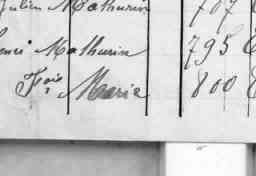 Julien Mathurin 707
Henri Mathurin 795
Fois Marie 800